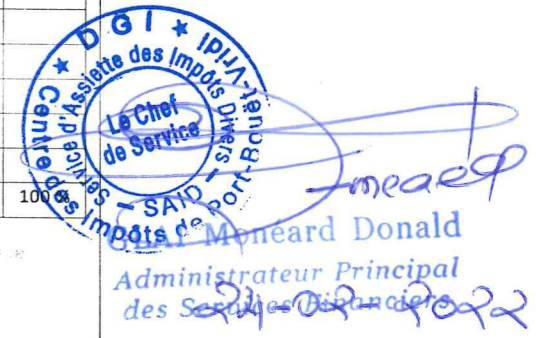 DGI
Centre des Impôts de Port-Bouët-Vridi
Service d'Assiette des Impôts Divers
- SAID -
Le Chef
de Service
100 %
Monéard Donald
Administrateur Principal
des Services Financiers
24-02-2022